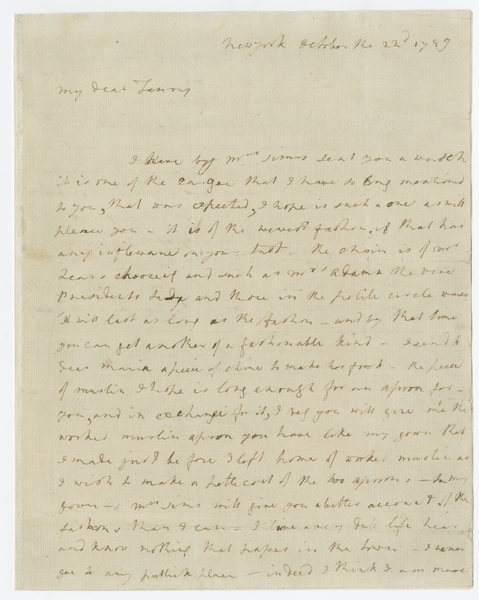 New york October the 22d 1789
my dear Fanny
I have by mrs Sims sent you a watch
it is one of the cargoe that I have so long mentioned
to you, that was expected, I hope is such a one as will
please you - it is of the newest fashon, if that has
any influence on your tast - the chain is of mr
Lears choosing and such as mrs Adams the vice
Presidents Lady and those in the polite circle wares
it will last as long as the fashon - and by that time
you can get another of a fashonable kind - I send to
dear maria a piece of chino to make her a frock - the piece
of muslin I hope is long enough for an apron for
you, and in exchange for it, I beg you will give me the
worked muslin apron you have like my gown that
I made just before I left home of worked muslin as
I wish to make a petticoat of the two aprons - for my
gown - mrs Sims will give you a better account of the
fashons than I can - I live a very dull life hear
and know nothing that passes in the town - I never
goe to any publick place - indeed I think I am more